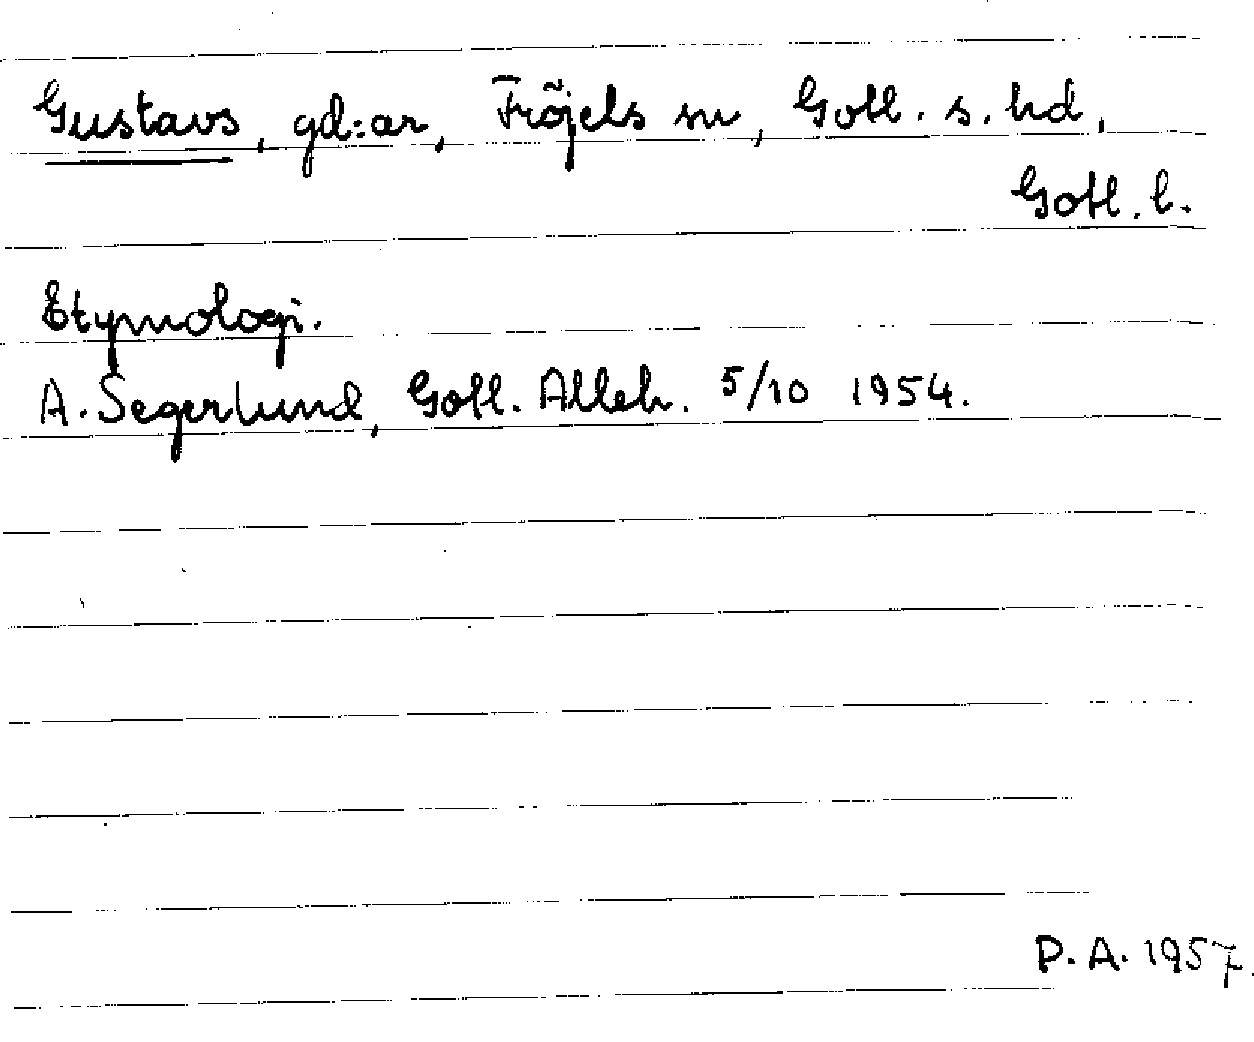 Gustavs, gd:ar, Fröjels sn, Gotl. s. hd,
Gotl. l.
Etymologi.
A. Segerlund, Gotl. Alleh. 5/10 1954.
P. A. 1957.